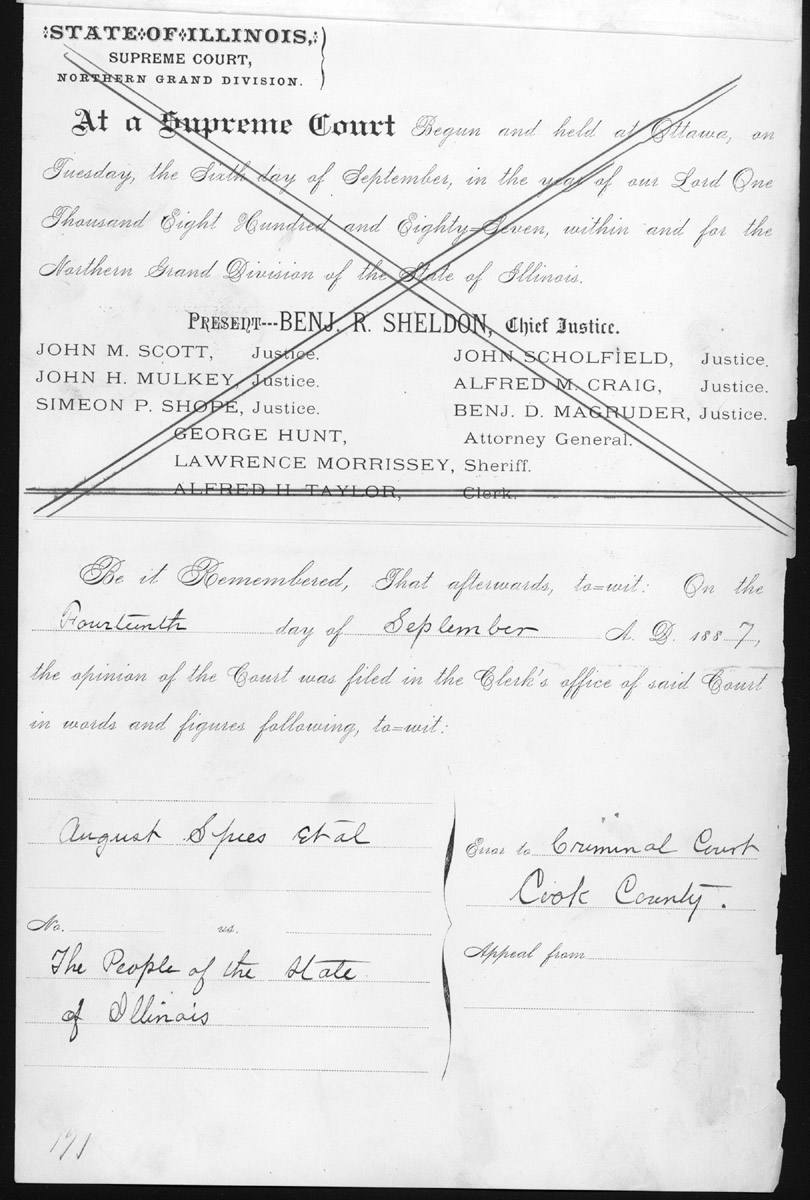 STATE OF ILLINOIS,
SUPREME COURT,
NORTHERN GRAND DIVISION.
At a Supreme Court Begun and held at Ottawa, on
Tuesday, the Sixth day of September, in the year of our Lord One
Thousand Eight Hundred and Eighty=Seven, within and for the
Northern Grand Division of the State of Illinois.
PRESENT---BENJ. R. SHELDON, Chief Justice.
JOHN M. SCOTT, Justice. JOHN SCHOLFIELD, Justice.
JOHN H. MULKEY, Justice. ALFRED M. CRAIG, Justice.
SIMEON P. SHOPE, Justice. BENJ. D. MAGRUDER, Justice.
GEORGE HUNT, Attorney General.
LAWRENCE MORRISSEY, Sheriff.
ALFRED H. TAYLOR, Clerk.
Be it Remembered, That afterwards, to=wit: On the
Fourteenth day of September A. D. 1887,
the opinion of the Court was filed in the Clerk's office of said Court
in words and figures following, to=wit:
August Spies et al
No. vs.
The People of the State
of Illinois
Error to Criminal Court
Cook County.
Appeal from
171